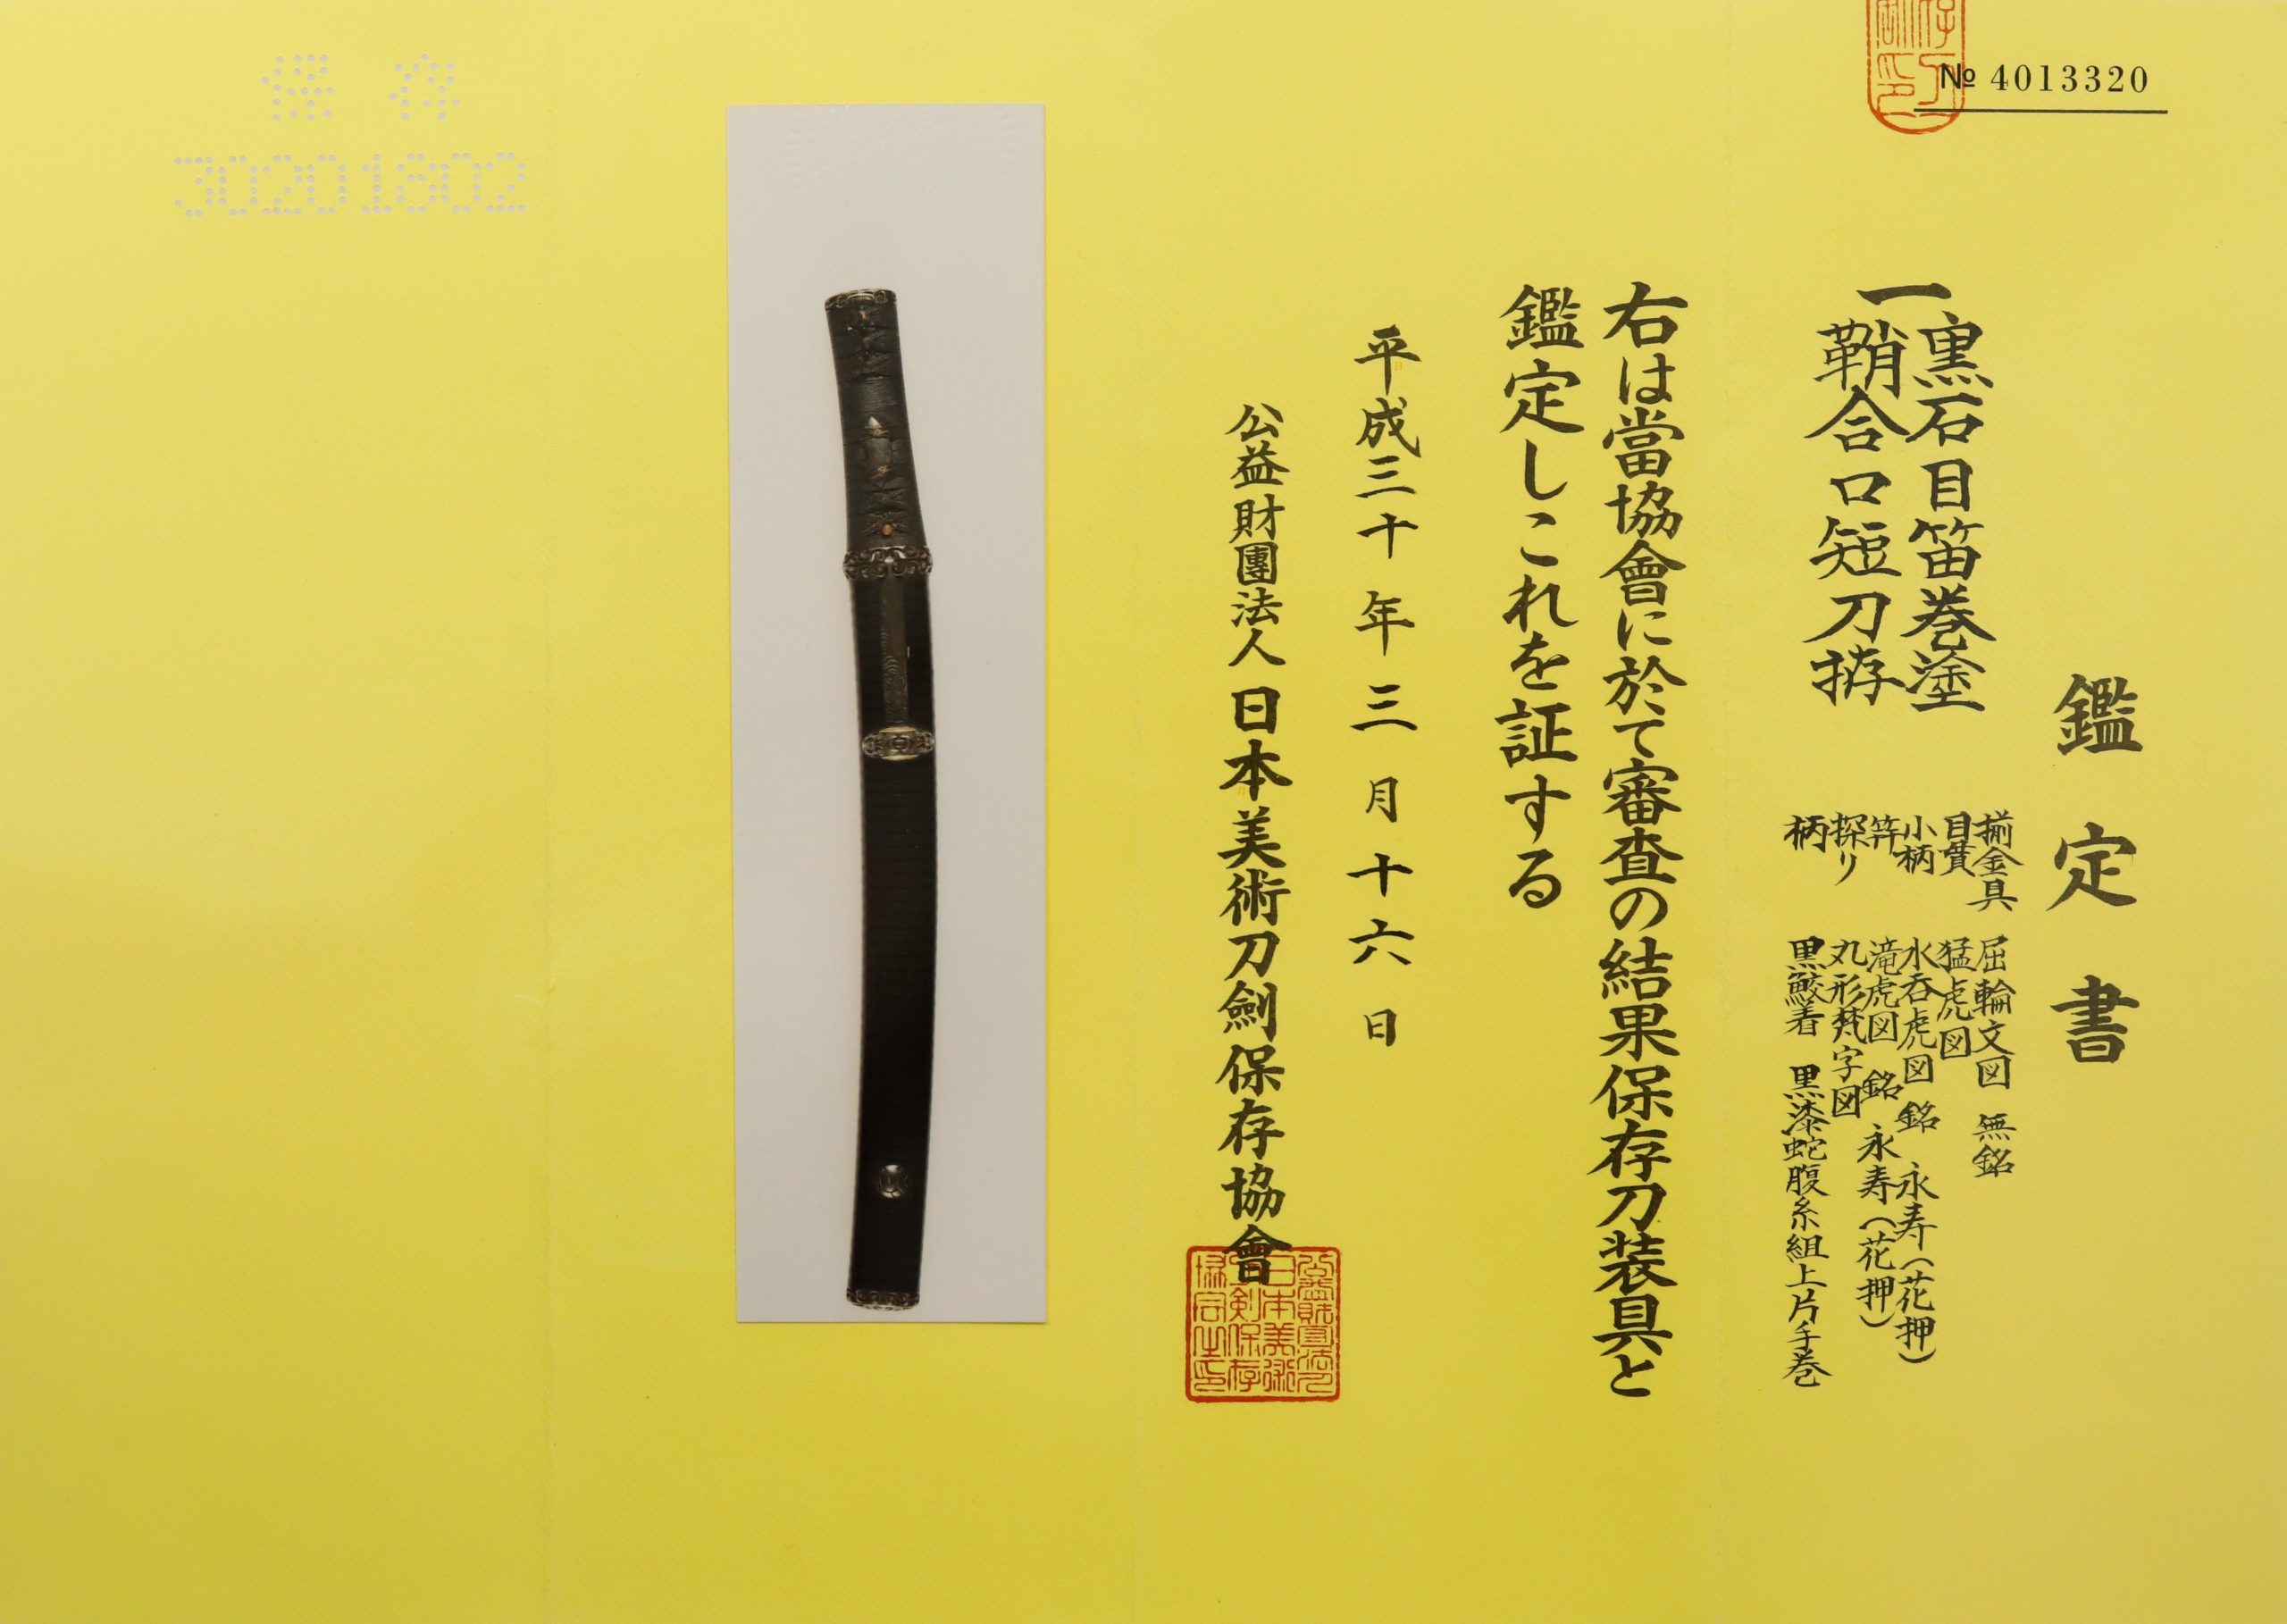 № 4013320
鑑定書
一 黒石目笛巻塗
鞘合口短刀拵
揃金具 屈輪文図 無銘
目貫 猛虎図
小柄 水呑虎図 銘 永寿(花押)
笄 滝虎図 銘 永寿(花押)
探り 丸形梵字図
柄 黒鮫着 黒漆蛇腹糸組上片手巻
右は當協會に於て審査の結果保存刀装具と
鑑定しこれを証する
平成三十年三月十六日
公益財團法人 日本美術刀劍保存協會
保存
30201802